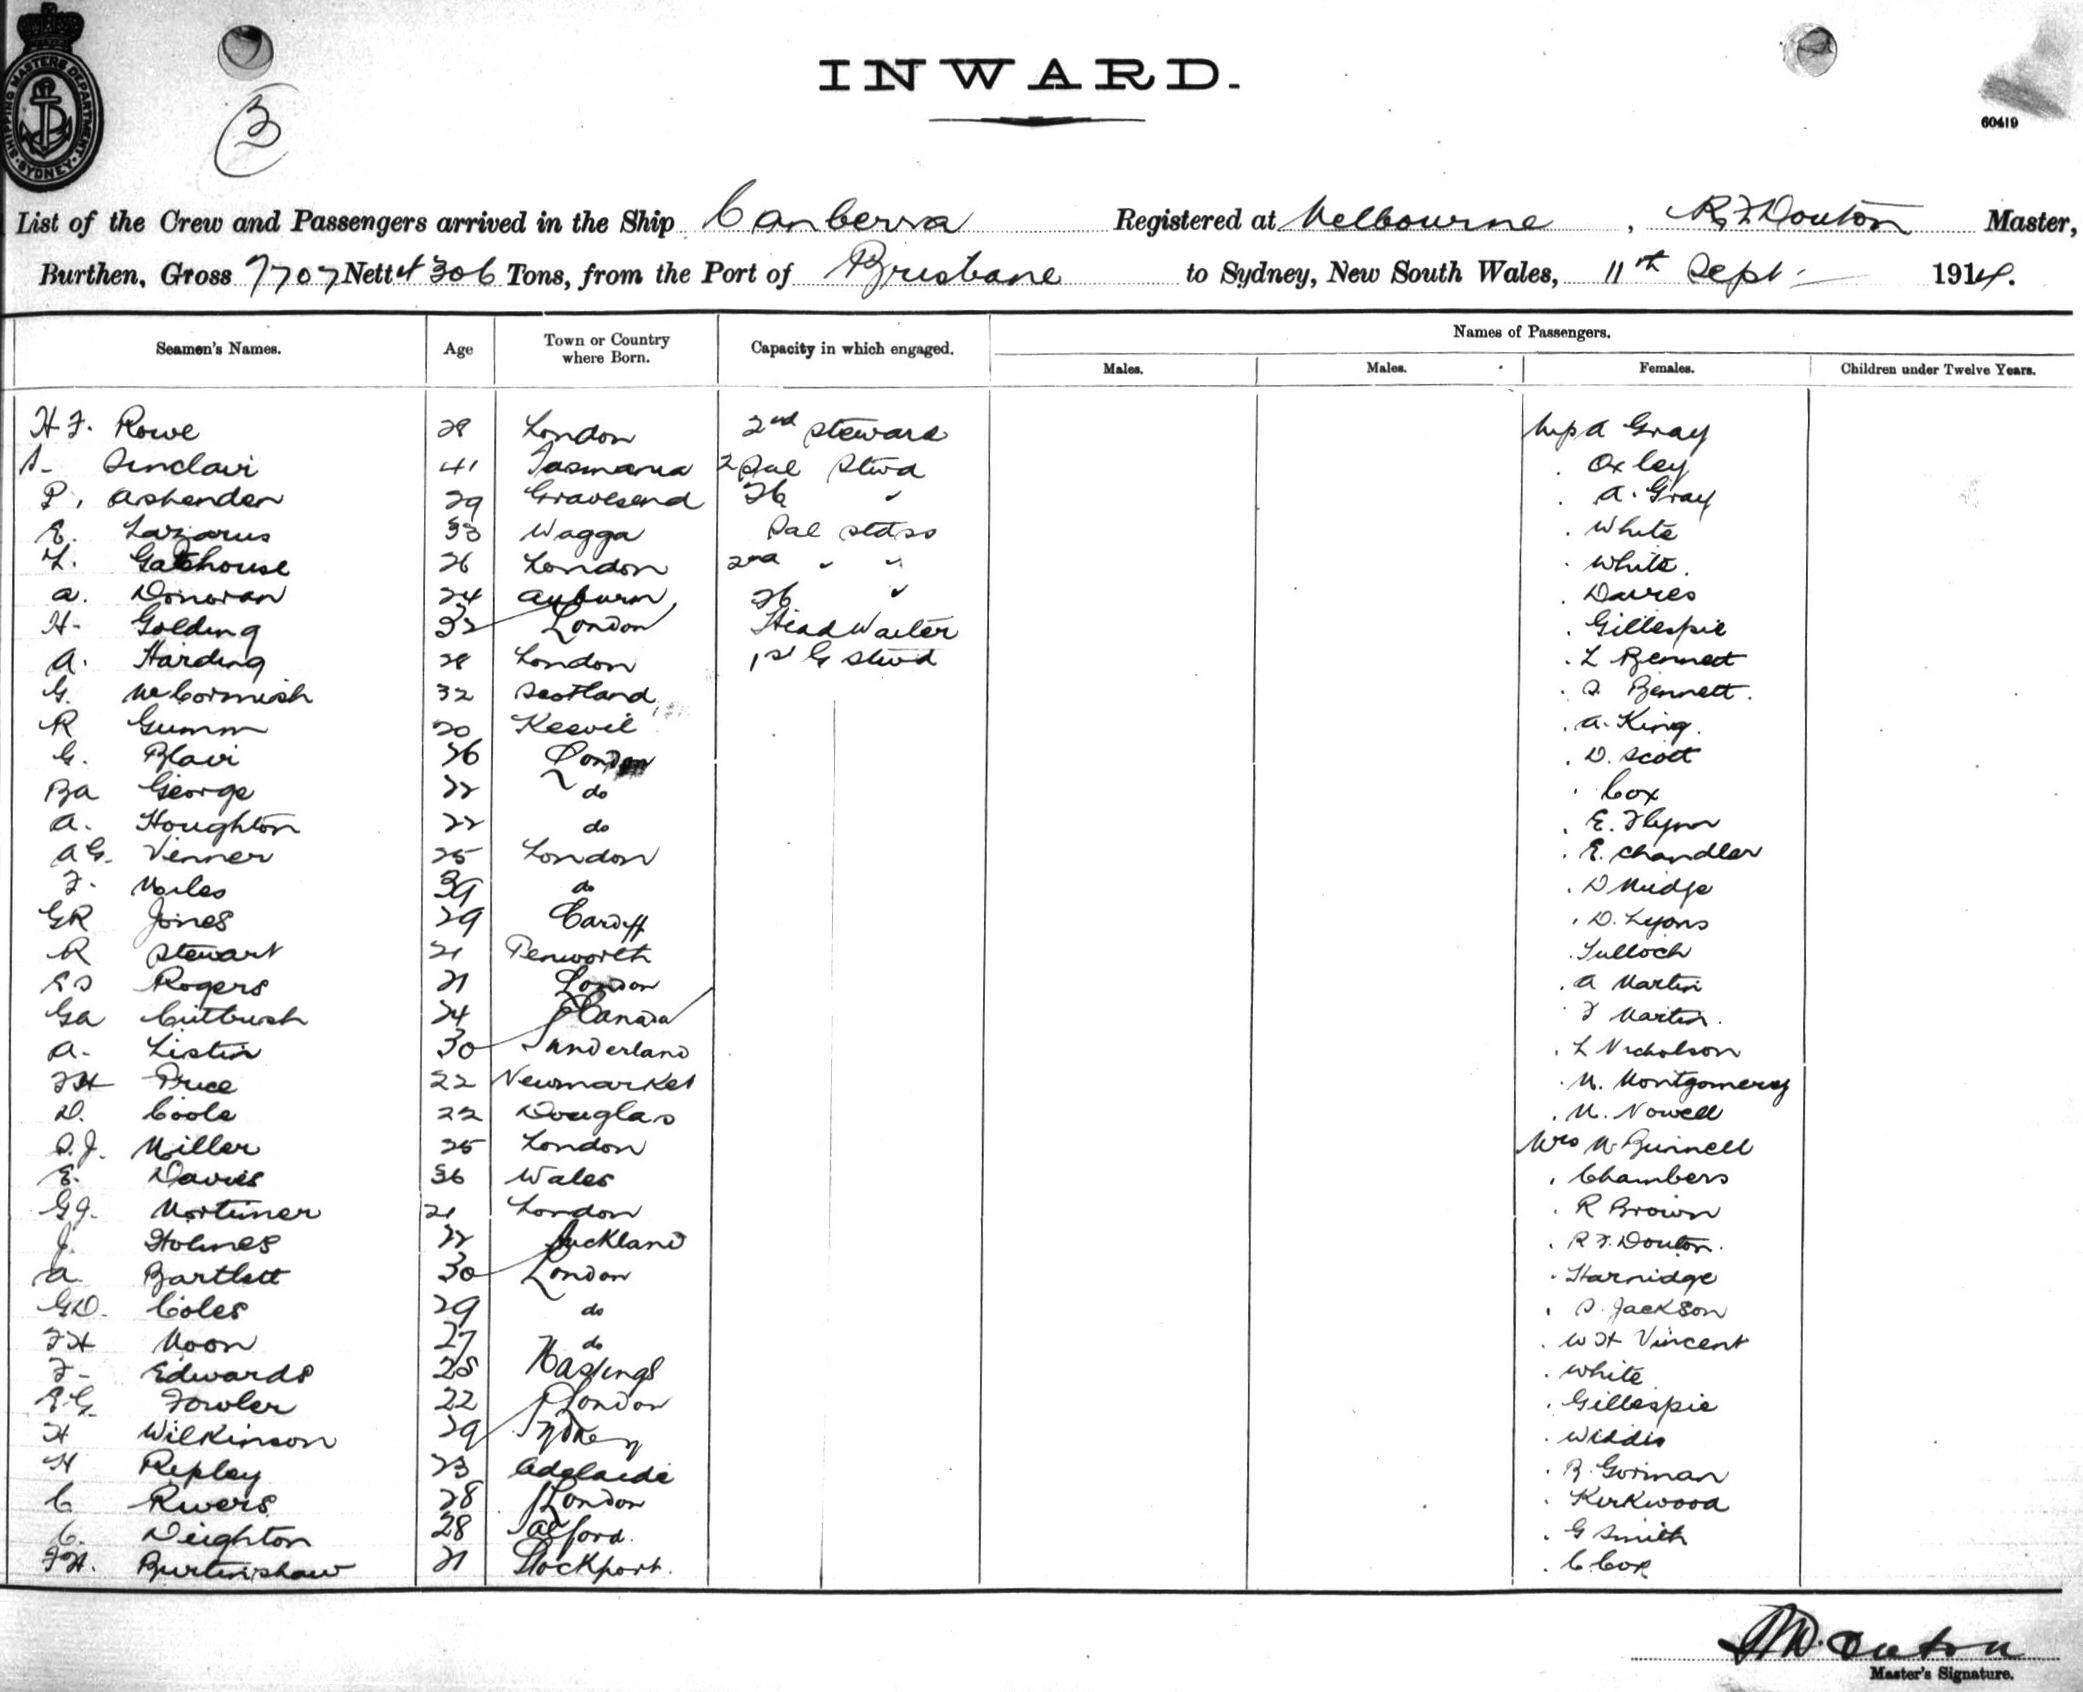 SHIPPING MASTERS DEPARTMENT
SYDNEY
3
INWARD.
60419
List of the Crew and Passengers arrived in the Ship Canberra Registered at Melbourne, R.F. Douton Master,
Burthen, Gross 7707 Nett 4306 Tons, from the Port of Brisbane to Sydney, New South Wales, 11th Sept 1914.
Seamen's Names. Age Town or Country where Born. Capacity in which engaged. Names of Passengers.
Males. Males. Females. Children under Twelve Years.
H F. Rowe 28 London 2nd steward A Gray
Sinclair 41 Tasmania 2 Sal Stwd Oxley
P. Ashenden 29 Gravesend A. Gray
E. Lazarus 33 Wagga Sal stdss White
L. Gatehouse 26 London 2nd " " White.
A. Donovan 24 Auburn Davies
H. Golding 32 London Head Waiter Gillespie
A. Harding 28 London 1st G Stwd L Bennett
G. McCormish 32 Scotland S. Bennett.
R Gumm 20 Keevil A. King.
G. Blair 26 London D. Scott
BA George 22 do Cox
A. Houghton 22 do E. Flynn
AG. Venner 25 London E. Chandler
F. Miles 39 do D Mudge
GR Jones 29 Cardiff D. Lyons
R Stewart 21 Penworth Tulloch
ES Rogers 21 London A Martin
GA Cutbush 24 Canada F Martin.
A. Listin 30 Sunderland L Nicholson
FH Price 22 Newmarket M. Montgomerey
D. Coole 22 Douglas M. Nowell
S.J. Miller 25 London Mrs M Bunnell
E. Davies 36 Wales Chambers
GJ. Mortimer 21 London R Brown
J. Holmes 22 Auckland R F. Douton.
A Bartlett 30 London Harnidge
GD. Coles 29 do S. Jackson
FH Moon 27 do W H Vincent
F- Edwards 25 Hastings White
EG. Fowler 22 London Gillespie
H Wilkinson 29 Sydney Widdis
H Ripley 23 Adelaide R. Gorman
C Rivers 28 London Kirkwood
C. Deighton 28 Salford. G Smith
FH. Burtinshaw 21 Stockport. C Cox
Douton
Master's Signature.